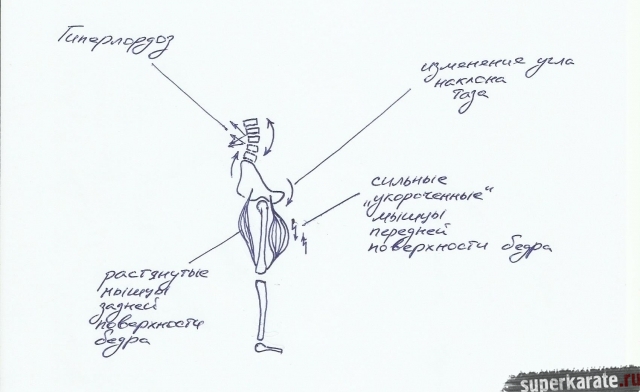 Гиперлордоз
изменение угла
наклона
таза
сильные
„укороченные"
мышцы
передней
поверхности бедра
растянутые
мышцы
задней
поверхности
бедра
superkarate.ru